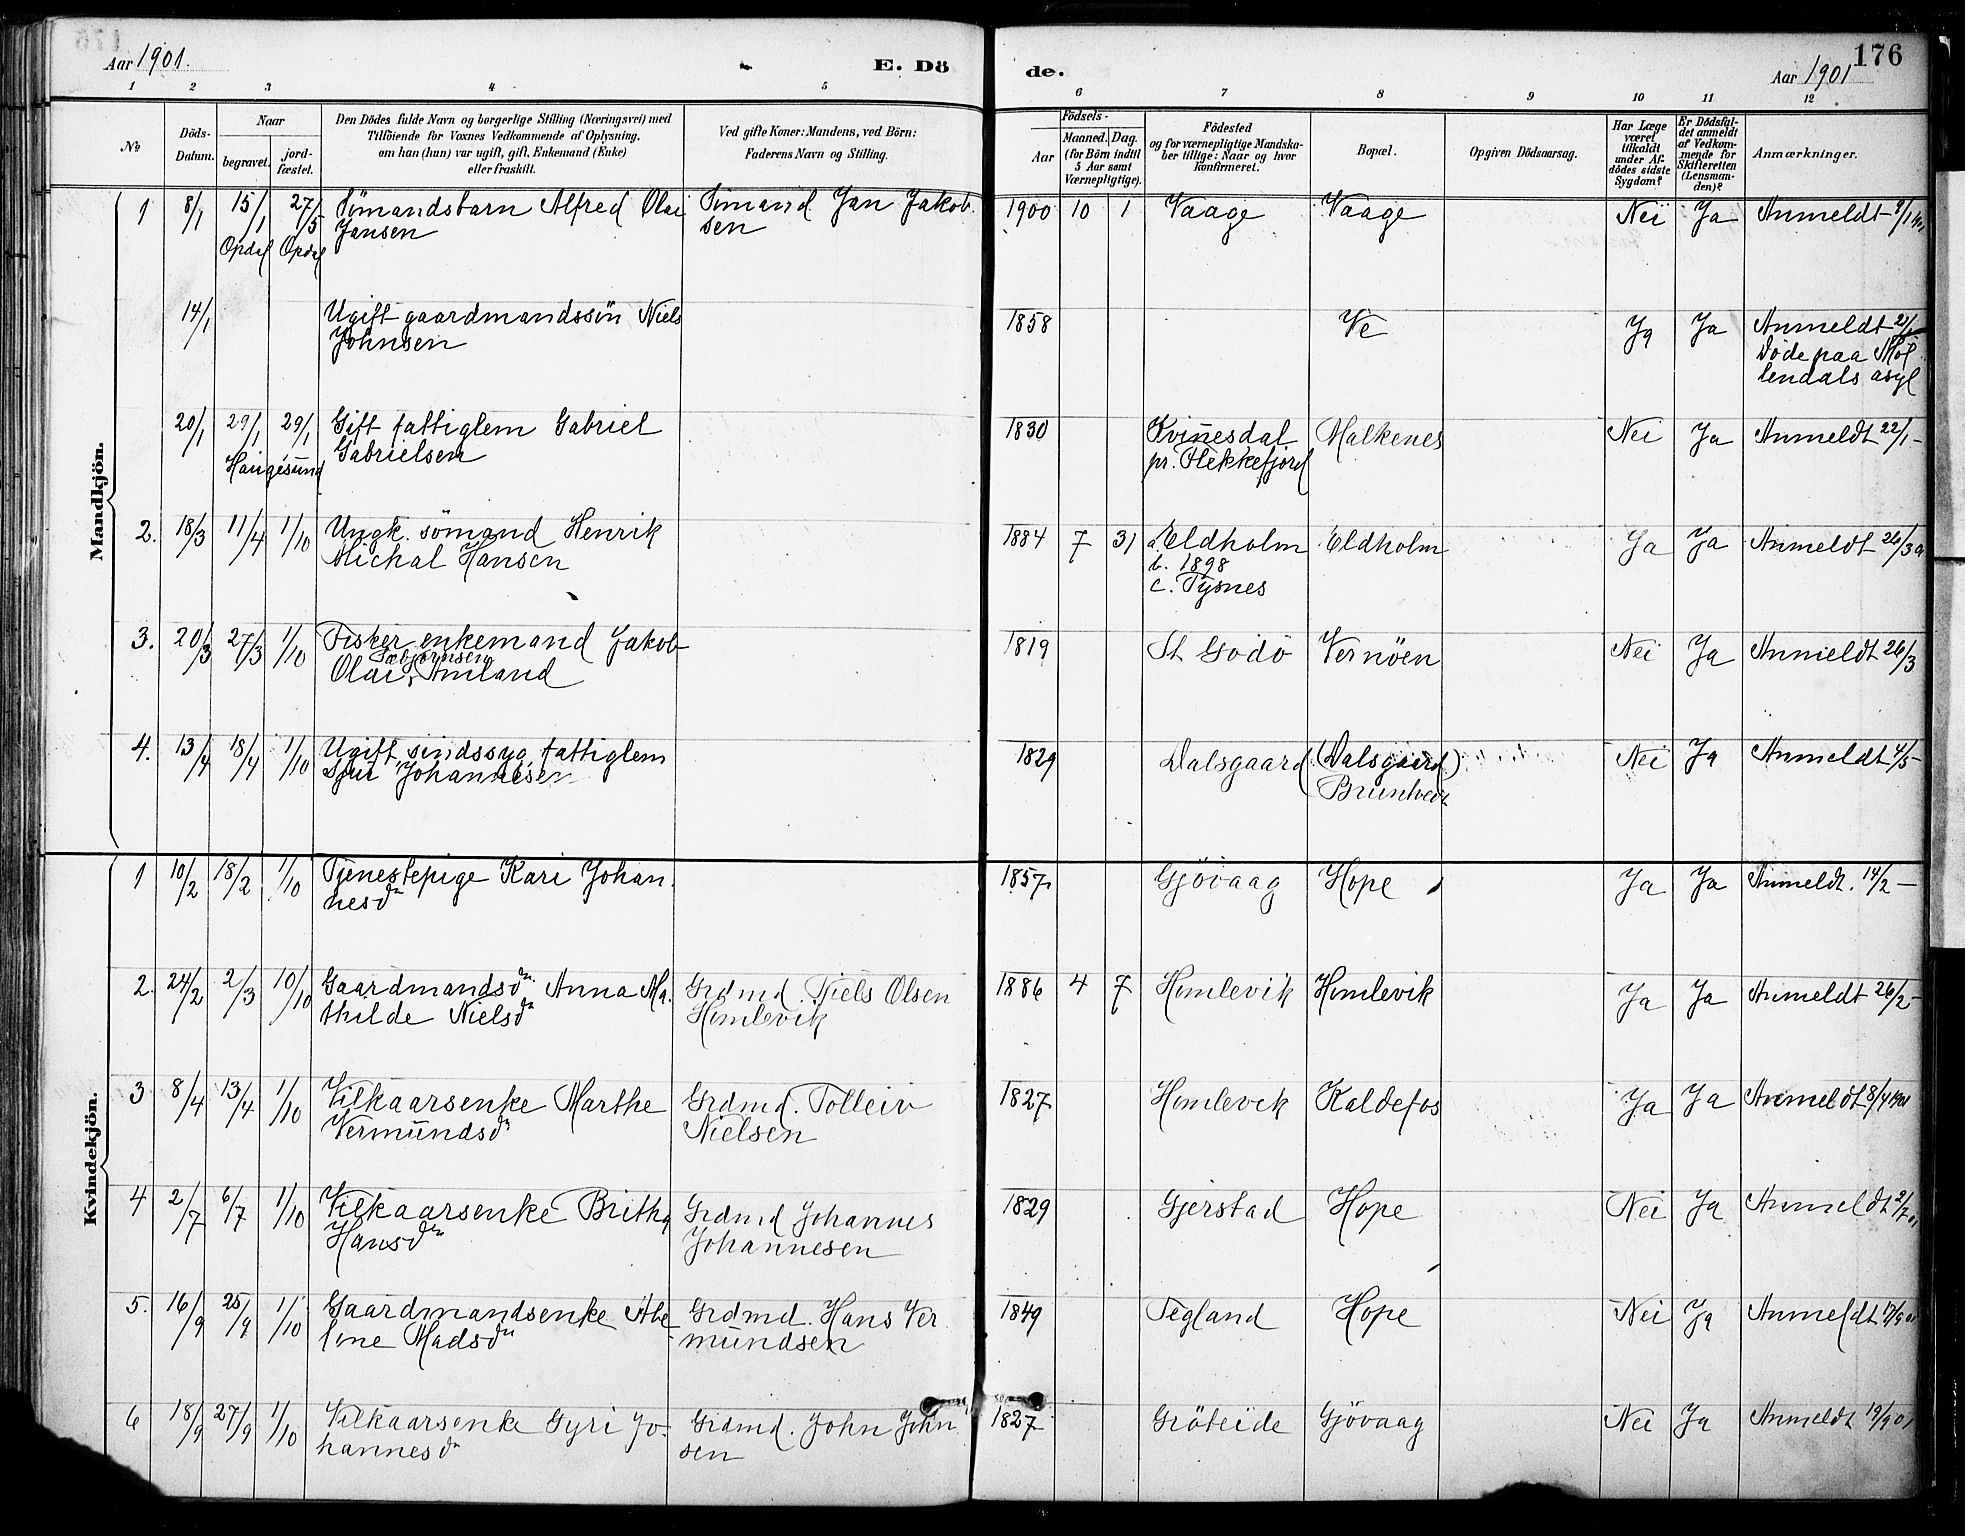 Aar 1901.
E. Dö
de.
Aar 1901
176
1 2 3 4 5 6 7 8 9 10 11 12
No
Döds-Datum.
Naar
begravet.
jord-fæstet.
Den Dödes fulde Navn og borgerlige Stilling (Næringsvei) med
Tilföiende for Voxnes Vedkommende af Oplysning,
om han (hun) var ugift, gift, Enkemand (Enke)
eller fraskilt.
Ved gifte Koner: Mandens, ved Börn:
Faderens Navn og Stilling.
Födsels-
Aar
Maaned.
Dag.
(for Börn indtil
5 Aar samt
Værnepligtige).
Födested
og for værnepligtige Mandska-
ber tillige: Naar og hvor
konfirmeret.
Bopæl.
Opgiven Dödsaarsag.
Har Læge
været
tilkaldt
under Af-
dödes sidste
Sygdom?
Er Dödsfal-
det anmeldt
af Vedkom-
mende for
Skifteretten
(Lensman-
den)?
Anmærkninger.
Mandkjön.
1 8/1 15/1 27/5 Sömandsbarn Alfred Olai Sömand Jan Jakob- 1900 10 1 Vaage Vaage Nei Ja Anmeldt 9/1 1901
Jansen sen
Opdal Opdal
14/1 Ugift gaardmandssön Niels 1858 Ve Ja Ja Anmeldt 21/1
Johnsen Döde paa Möl
lendals asyl
20/1 29/1 29/1 Gift fattiglem Gabriel 1830 Kvinesdal Malkenes Nei Ja Anmeldt 22/1 -
Haugesund Gabrielsen pr. Flekkefjord
2. 18/3 11/4 1/10 Ungk. sömand Henrik 1884 7 31 a. Eldholm Eldholm Ja Ja Anmeldt 26/3
Mickal Hansen b. 1898
c. Tysnes
3. 20/3 27/3 1/10 Fisker, enkemand Jakob 1819 St Godö Vernöen Nei Ja Anmeldt 26/3
Sæbjörnsen
Olai Amland
4. 13/4 18/4 1/10 Ugift, sindssyg, fattiglem 1829 Dalsgaard (Dalsgaard) Nei Ja Anmeldt 4/5 -
Sjur Johannesen
Kvindekjön.
1 10/2 18/2 1/10 Tjenestepige Kari Johan- 1857 Gjövaag Hope Ja Ja Anmeldt. 14/2 -
nesdn
2. 24/2 2/3 10/10 Gaardmandsdn. Anna Ma- Grdmd. Niels Olsen 1886 4 7 Humlevik Humlevik Ja Ja Anmeldt 26/2 -
thilde Nielsdn Humlevik
3 8/4 13/4 1/10 Vilkaarsenke Marthe Grdmd. Tolleiv 1827 Humlevik Kaldefos Ja Ja Anmeldt 8/4 1901
Vermundsdn Nielsen
4 2/7 6/7 1/10 Vilkaarsenke Britha Grdmd Johannes 1829 Gjerstad Hope Nei Ja Anmeldt 2/7 01
Hansdn Johannesen
5. 16/9 25/9 1/10 Gaardmandsenke Abe- Grdmd. Hans Ver 1849 Tegland Hope Nei Ja Anmeldt 17/9 01
line Madsdn mundsen
6 18/9 27/9 1/10 Vilkaarsenke Gyri Jo- Grdmd. John John 1827 Gröteide Gjövaag Nei Ja Anmeldt 19/9 01
hannesdn sen